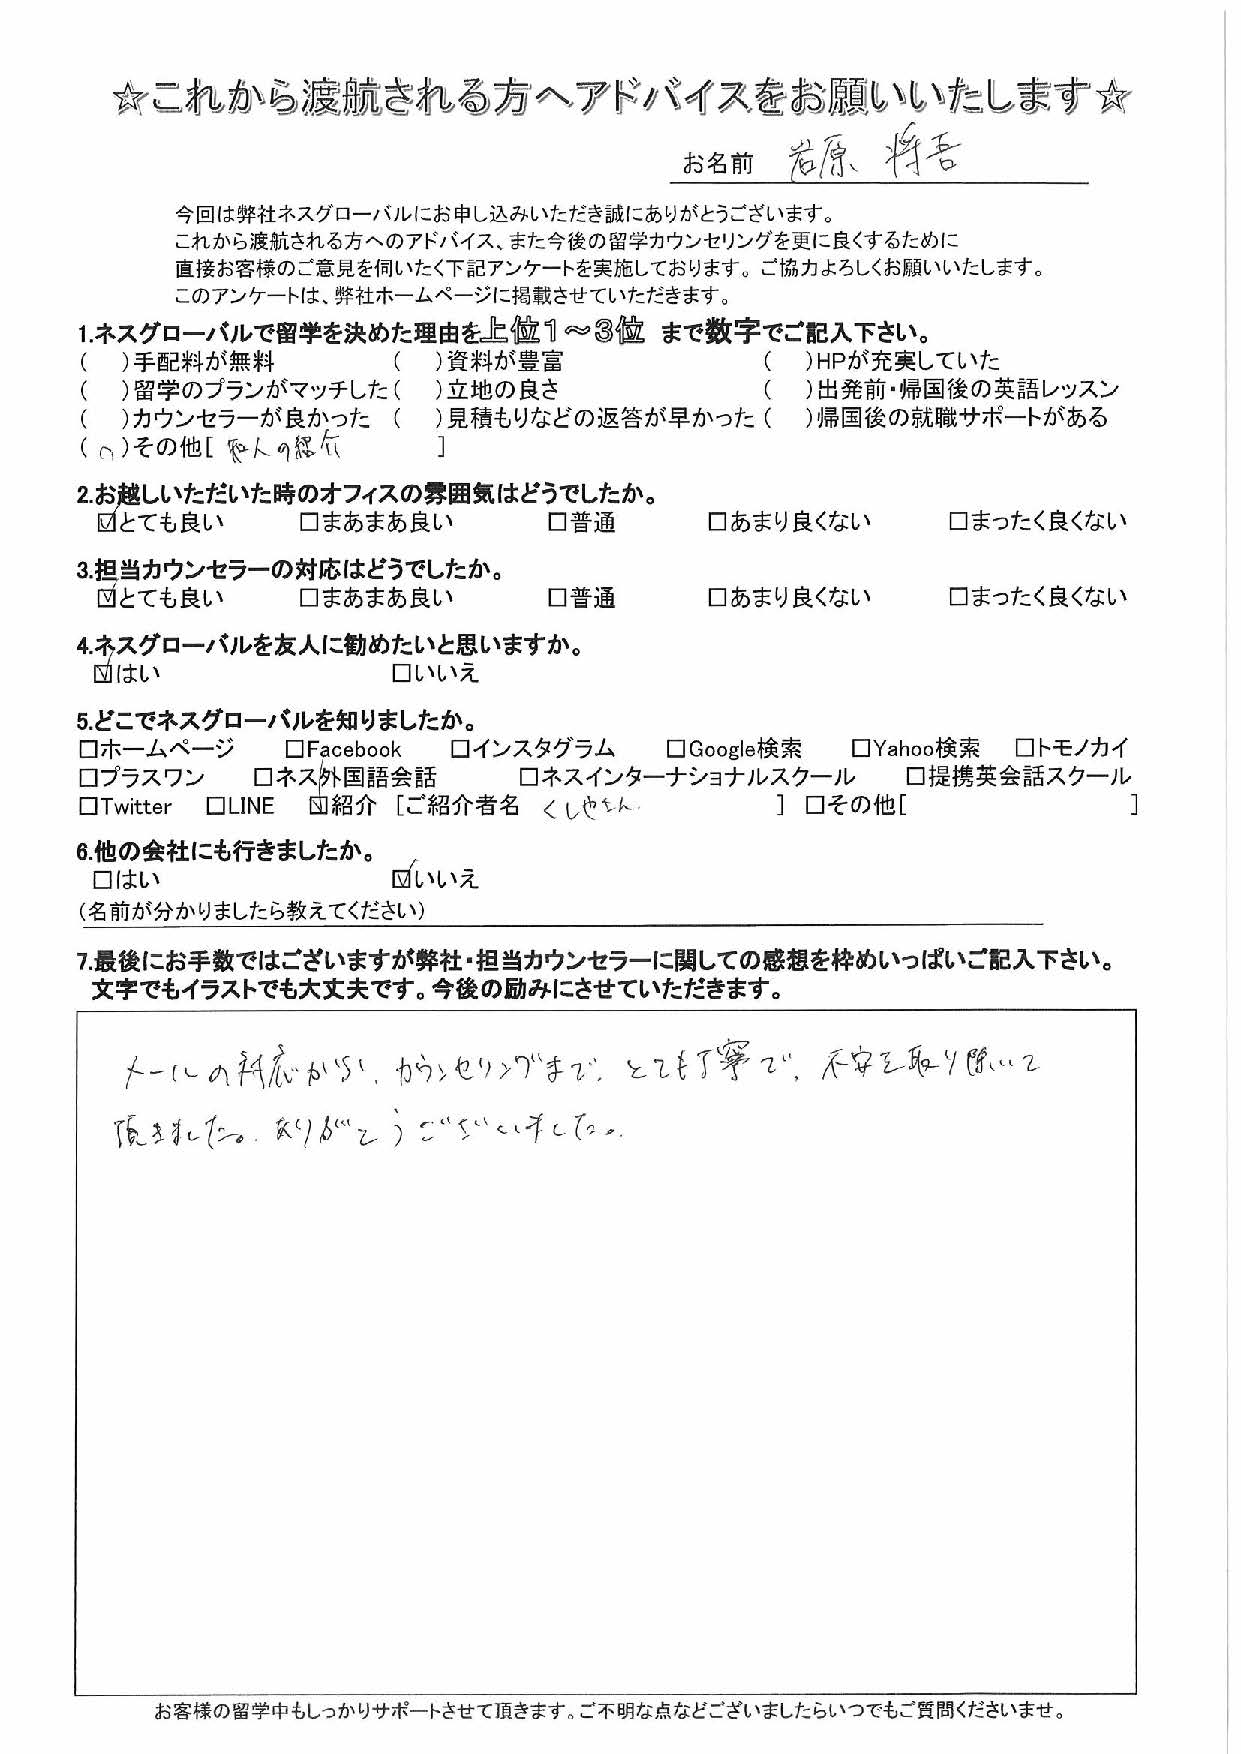 ☆これから渡航される方へアドバイスをお願いいたします☆
お名前 岩原 将吾
今回は弊社ネスグローバルにお申し込みいただき誠にありがとうございます。
これから渡航される方へのアドバイス、また今後の留学カウンセリングを更に良くするために
直接お客様のご意見を伺いたく下記アンケートを実施しております。ご協力よろしくお願いいたします。
このアンケートは、弊社ホームページに掲載させていただきます。
1.ネスグローバルで留学を決めた理由を上位1～3位 まで数字でご記入下さい。
( )手配料が無料 ( )資料が豊富 ( )HPが充実していた
( )留学のプランがマッチした ( )立地の良さ ( )出発前・帰国後の英語レッスン
( )カウンセラーが良かった ( )見積もりなどの返答が早かった ( )帰国後の就職サポートがある
( )その他[ 友人の紹介 ]
2.お越しいただいた時のオフィスの雰囲気はどうでしたか。
☑とても良い □まあまあ良い □普通 □あまり良くない □まったく良くない
3.担当カウンセラーの対応はどうでしたか。
☑とても良い □まあまあ良い □普通 □あまり良くない □まったく良くない
4.ネスグローバルを友人に勧めたいと思いますか。
☑はい □いいえ
5.どこでネスグローバルを知りましたか。
□ホームページ □Facebook □インスタグラム □Google検索 □Yahoo検索 □トモノカイ
□プラスワン □ネス外国語会話 □ネスインターナショナルスクール □提携英会話スクール
□Twitter □LINE ☑紹介 [ご紹介者名 くしやさん ] □その他[ ]
6.他の会社にも行きましたか。
□はい ☑いいえ
(名前が分かりましたら教えてください)
7.最後にお手数ではございますが弊社・担当カウンセラーに関しての感想を枠めいっぱいご記入下さい。
文字でもイラストでも大丈夫です。今後の励みにさせていただきます。
メールの対応から、カウンセリングまで、とても丁寧で、不安を取り除いて
頂きました。ありがとうございました。
お客様の留学中もしっかりサポートさせて頂きます。ご不明な点などございましたらいつでもご質問くださいませ。